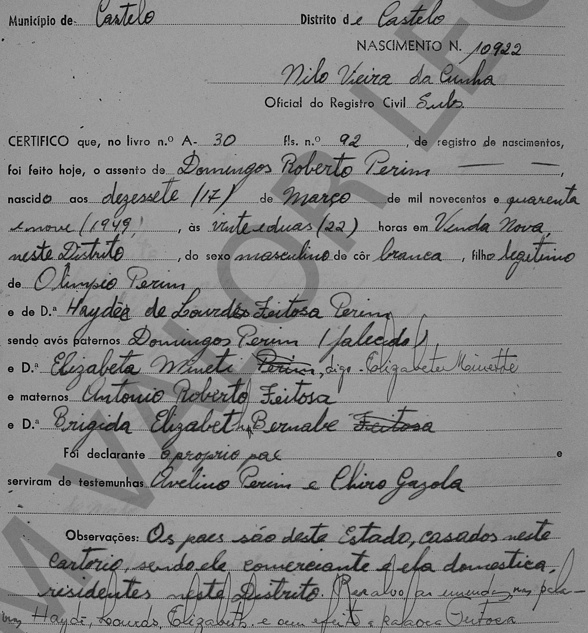 Município de Castelo Distrito de Castelo
NASCIMENTO N. 10922
Nilo Vieira da Cunha
Oficial do Registro Civil Subs.
CERTIFICO que, no livro n.º A- 30 fls. n.º 92, de registro de nascimentos,
foi feito hoje, o assento de Domingos Roberto Perim
nascido aos dezessete (17) de Março de mil novecentos e quarenta
e nove (1949), às vinte e duas (22) horas em Venda Nova,
neste Distrito, do sexo masculino de côr branca, filho legitimo
de Olimpio Perim
e de D.ª Haydée de Lourdes Feitosa Perim
sendo avós paternos Domingos Perim (falecido)
e D.ª Elizabeta Mineti Perim, digo Elizabeta Minette
e maternos Antonio Roberto Feitosa
e D.ª Brigida Elizabeth Bernabe Feitosa
Foi declarante o proprio pae e
serviram de testemunhas Avelino Perim e Chiro Gazola
Observações: Os paes são deste Estado, casados neste
cartorio, sendo ele comerciante e ela domestica,
residentes neste Distrito. Ressalvo as emendas nas pala-
vras Haydê, Lourdes, Elizabeth e sem efeito a palavra Feitosa
M VALOR LEG